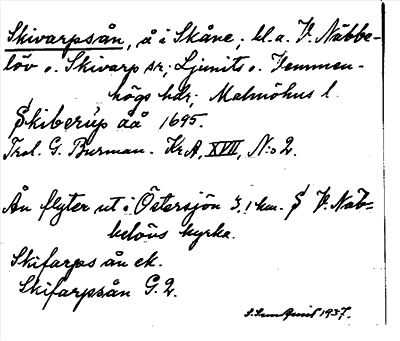 Skivarpsån, å i Skåne; bl.a. V. Näbbe-
löv o. Skivarp sr; Ljunits o. Vemmen-
högs hdr; Malmöhus l.
Skiberup åå 1695.
Trol. G. Burman. Kr.A, XVII, N:o 2.
Ån flyter ut i Östersjön 3,1 km. S V. Näb-
belövs kyrka.
Skifarps ån ek.
Skifarpsån G. 2.
1937.